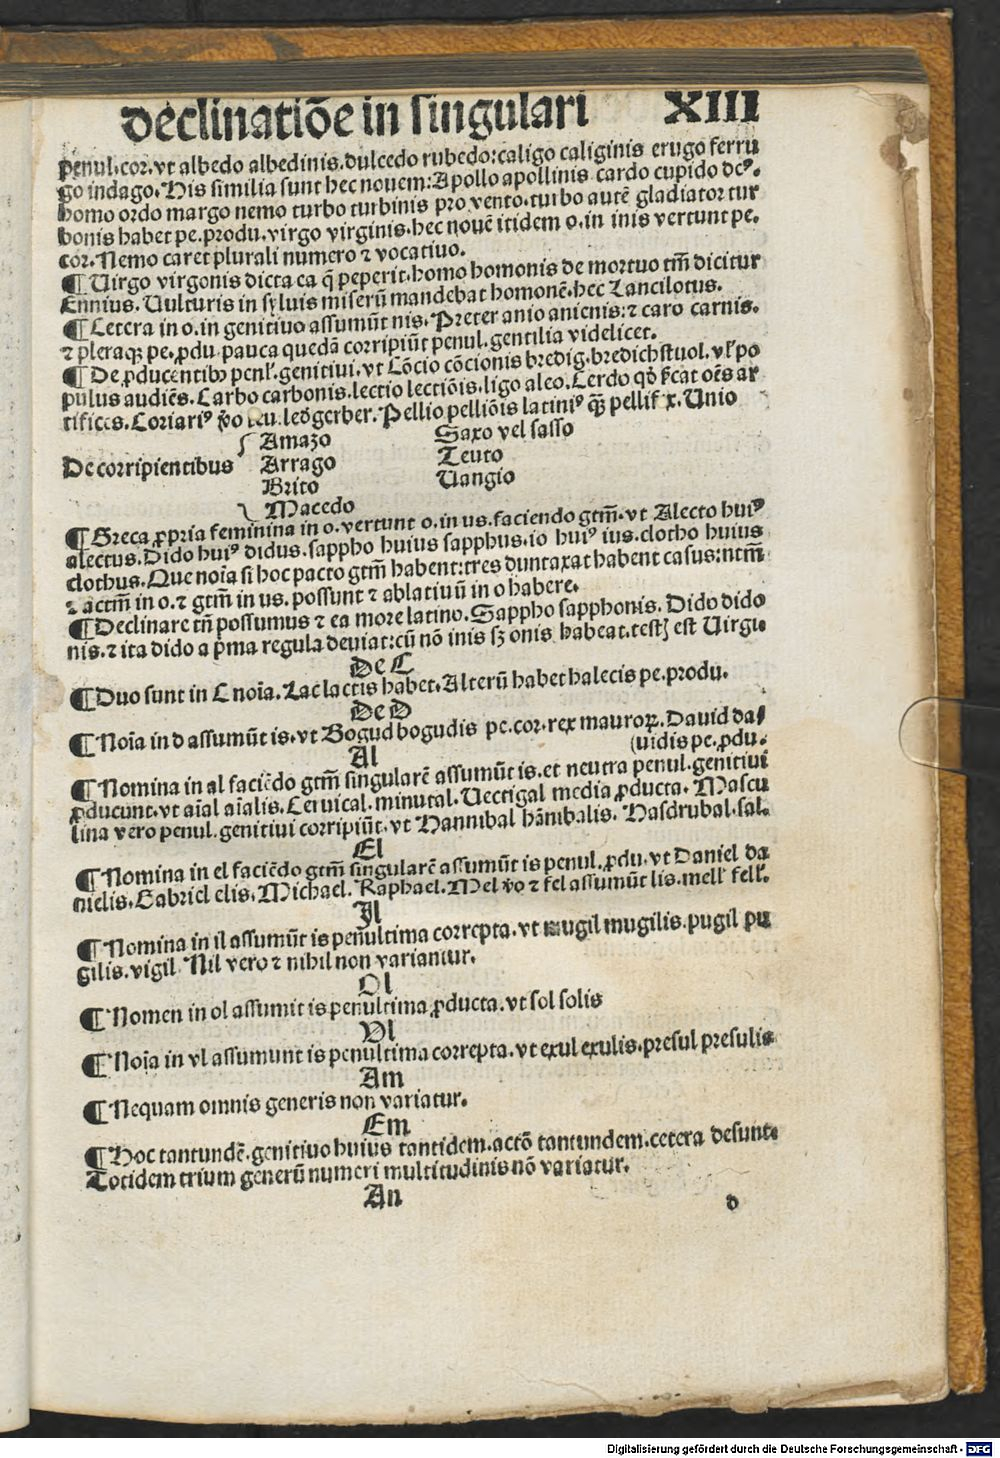 declinatiōe in singulari XIII
penul.cor.vt albedo albedinis.dulcedo rubedo:caligo caliginis erugo ferru
go indago. His similia sunt hec nouem: Apollo apollinis cardo cupido
homo ordo margo nemo turbo turbinis pro vento.turbo autē gladiator tur
bonis habet pe.produ.virgo virginis.hec nouē itidem o.in inis vertunt pe.
cor. Nemo caret plurali numero ⁊ vocatiuo.
¶ Uirgo virgonis dicta ea q̄ peperit.homo homonis de mortuo tm̄ dicitur
Ennius. Uulturis in syluis miserū mandebat homonē.hec Lancilotus.
¶ Cetera in o.in genitiuo assumūt nis. Preter anio anienis:⁊ caro carnis.
⁊ pleraqꝫ pe.ꝓdu pauca quedā corripiūt penul.gentilia videlicet.
¶ De ꝓducentibꝰ penl'.genitiui.vt Cōcio cōcionis bredig.bredichstuol.vl' po
pulus audiēs. Carbo carbonis.lectio lectiōis.ligo aleo. Cerdo oēs ar
tifices. Coriariꝰ ledgerber. Pellio pelliōis latiniꝰ Unio
Amazo Saxo vel sasso
De corripientibus Arrago Teuto
Brito Uangio
Macedo
¶ Greca ꝓpria feminina in o.vertunt o.in us.faciendo gtm̄.vt Alecto huiꝰ
alectus. Dido huiꝰ didus.sappho huius sapphus.io huiꝰ ius.clotho huius
clothus. Que noīa si hoc pacto gtm̄ habent:tres duntaxat habent casus:ntm̄
⁊ actm̄ in o.⁊ gtm̄ in us.possunt ⁊ ablatiuū in o habere.
¶ Declinare tn̄ possumus ⁊ ea more latino. Sappho sapphonis. Dido dido
nis.⁊ ita dido a pma regula deuiat:cū nō inis sꝫ onis habeat. est Uirgi.
De C
¶ Duo sunt in C noīa. Lac lactis habet. Alterū habet halecis pe.produ.
De D
¶ Noīa in d assumūt is.vt Bogud bogudis pe.cor.rex mauroꝝ. Dauid da/
(uidis pe.ꝓdu.
Al
¶ Nomina in al faciēdo gtm̄ singularē assumūt is.et neutra penul.genitiui
ꝓducunt.vt aīal aīalis. Ceruical.minutal. Uectigal media ꝓducta. Mascu
lina vero penul.genitiui corripiūt.vt Hannibal hānibalis. Hasdrubal.sal.
El
¶ Nomina in el faciēdo gtm̄ singularē assumūt is penul.ꝓdu.vt Daniel da
nielis. Gabriel elis. Michael. Raphael. Mel v̄o ⁊ fel assumūt lis.mell' fell'.
Il
¶ Nomina in il assumūt is penultima correpta.vt mugil mugilis.pugil pu
gilis.vigil Nil vero ⁊ nihil non variantur.
Ol
¶ Nomen in ol assumit is penultima ꝓducta.vt sol solis
Vl
¶ Noīa in vl assumunt is penultima correpta.vt exul exulis.presul presulis
Am
¶ Nequam omnis generis non variatur.
Em
¶ Hoc tantundē.genitiuo huius tantidem.actō tantundem.cetera desunt.
Totidem trium generū numeri multitudinis nō variatur.
An d
Digitalisierung gefördert durch die Deutsche Forschungsgemeinschaft - DFG